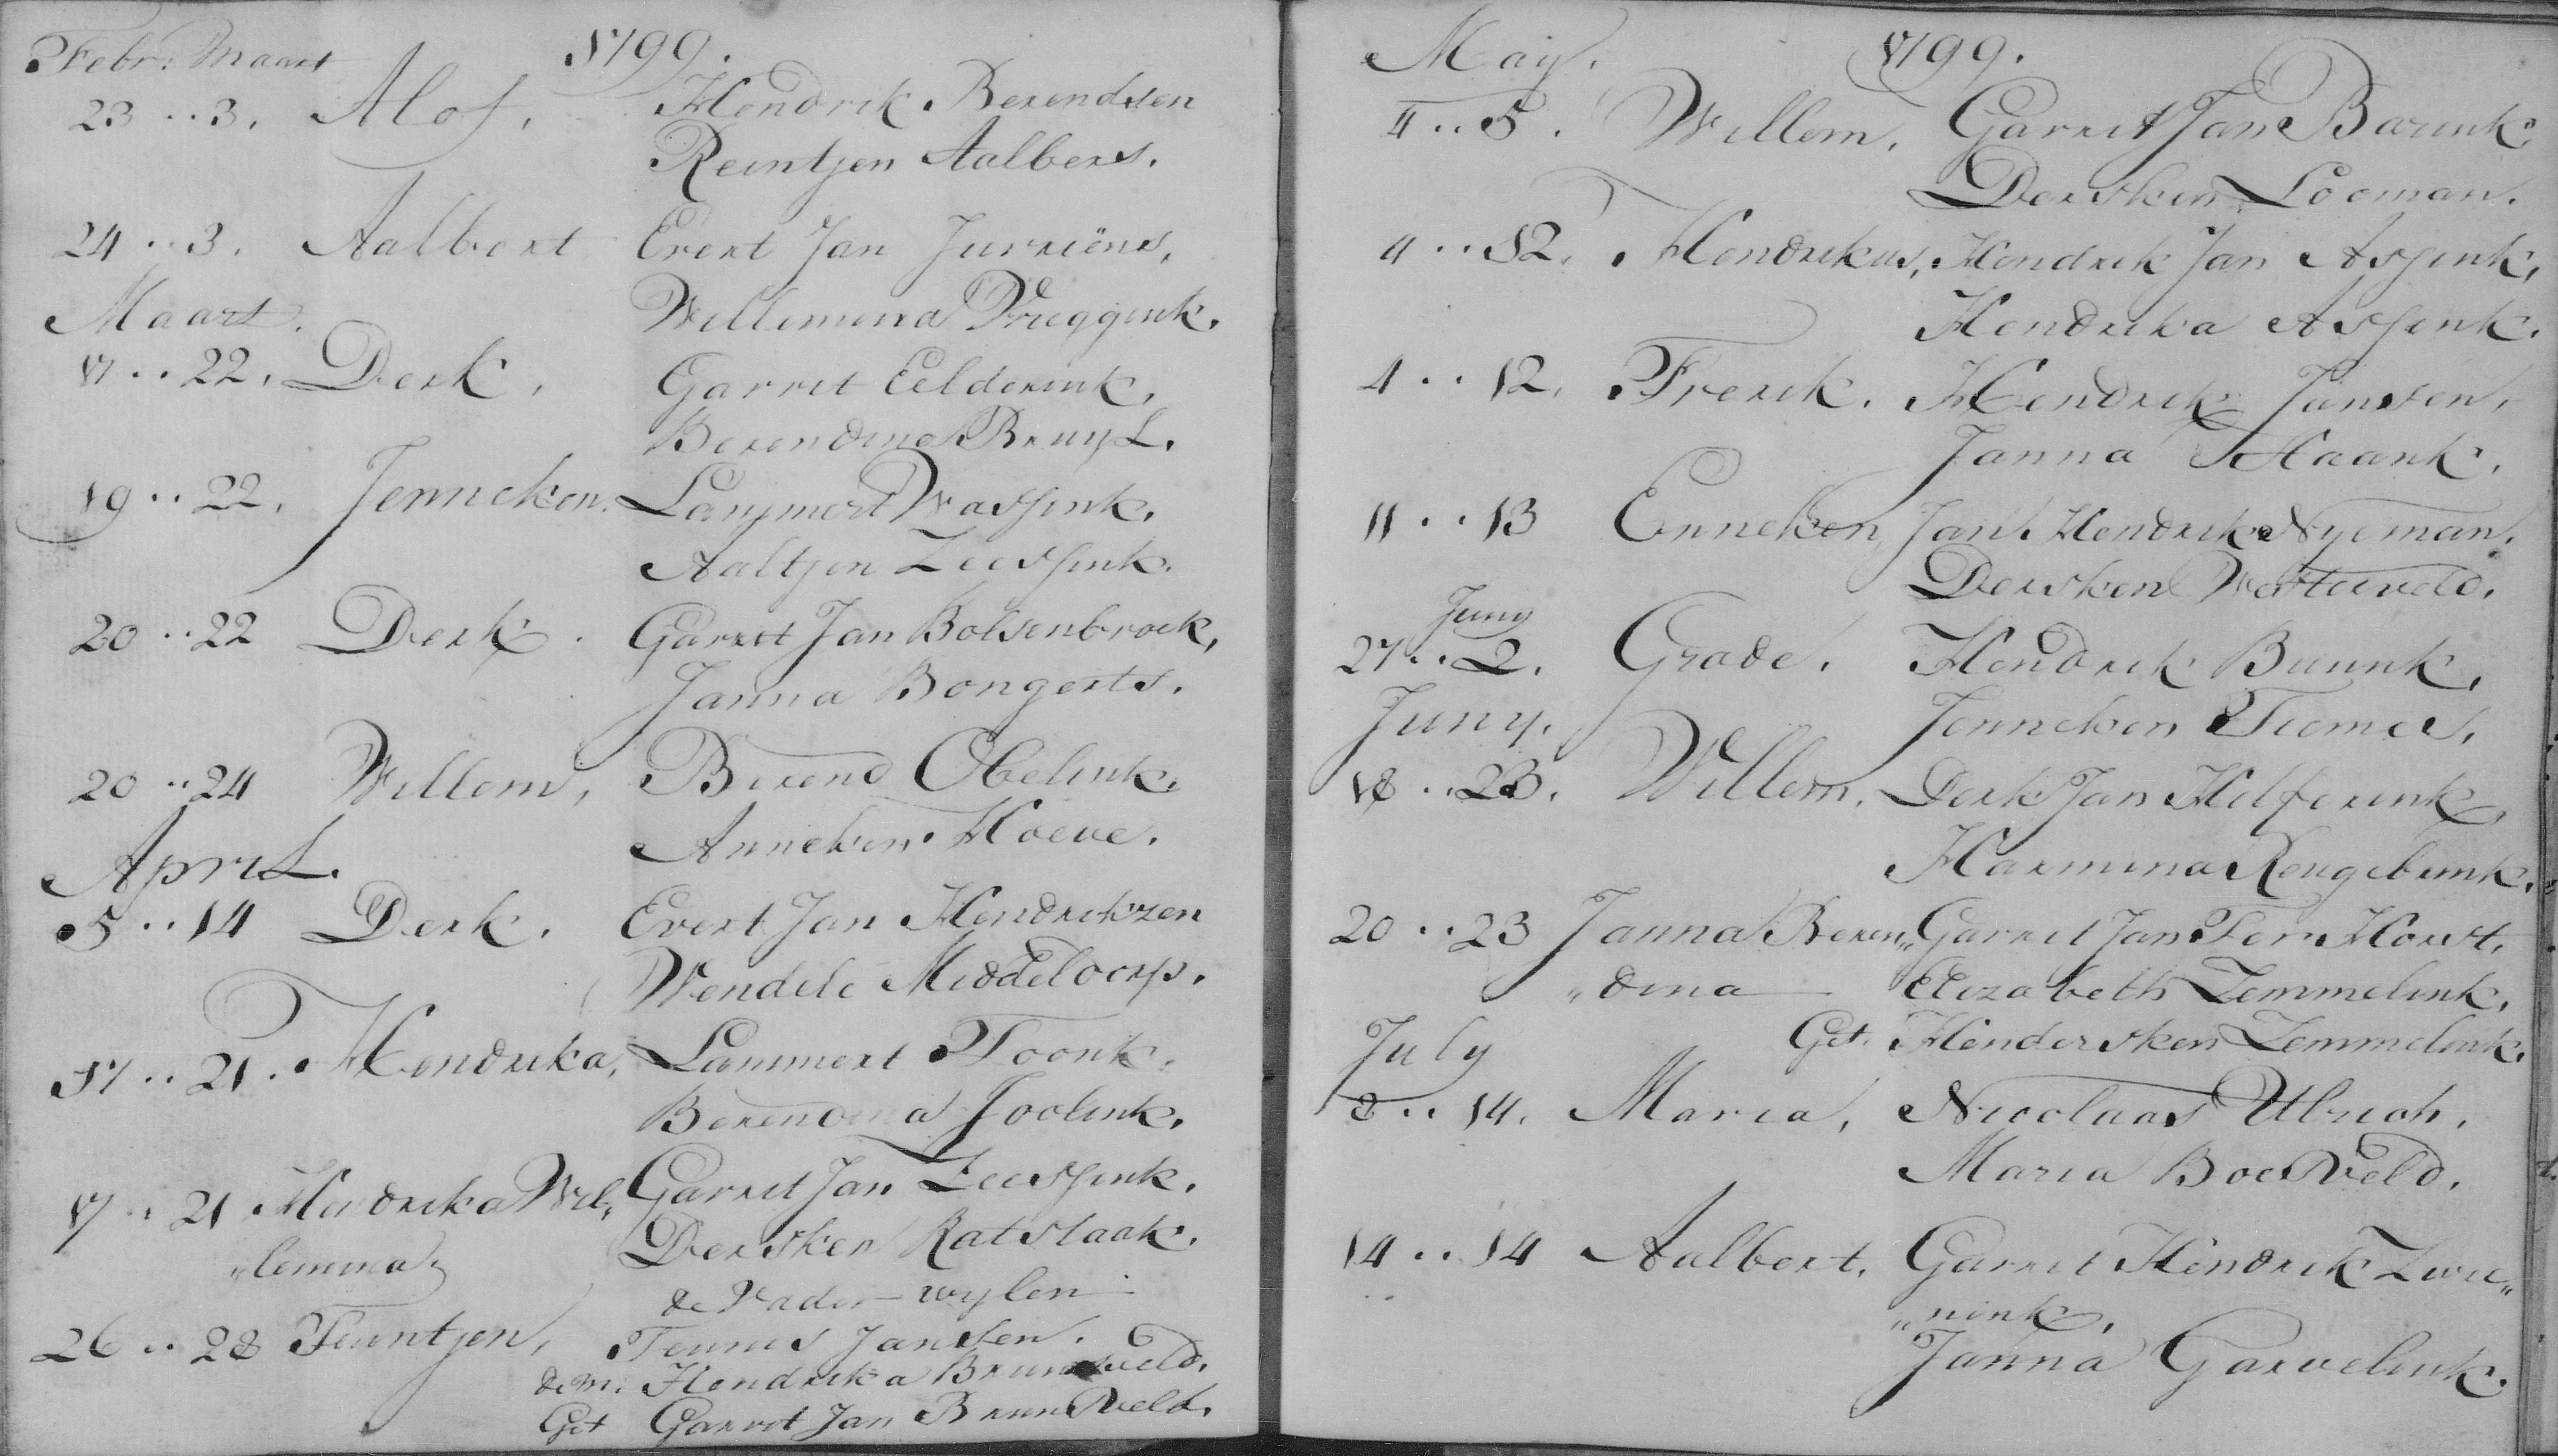 Febr: Maart 1799.
23 .. 3. Alof, Hendrik Berendsen
Reintjen Aalbers.
24 .. 3. Aalbert Evert Jan Jurriëns,
Willemina Vruggink.
Maart.
17 .. 22. Derk, Garrit Eelderink,
Berendina Bruyl.
19 .. 22. Jenneken. Lammert Wassink,
Aaltjen Leessink.
20 .. 22 Derk. Garrit Jan Bolsenbroek,
Janna Bongerts.
20 .. 24 Willem, Berend Obelink,
Anneken Hoeve.
April.
5 .. 14 Derk. Evert Jan Hendrikzen
Wendele Middeldorp.
17 .. 21. Hendrika, Lammert Toonk,
Berendina Joolink.
17 .. 21 Hendrika Wil„ Garrit Jan Leessink.
„lemina, Dersken Ratslaak.
de Vader - wylen -
26 .. 28 Teuntjen, Teunis Janssen.
de m. Hendrika Brunsveld.
Get Garrit Jan Brunsveld.
May. 1799.
4 .. 5. Willem, Garrit Jan Barink,
Dersken Looman.
4 .. 12. Hendrikus, Hendrik Jan Assink,
Hendrika Assink.
4 .. 12. Frerik. Hendrik Jansen,
Janna Haank.
11 .. 13 Enneken, Jan Hendrik Nyeman.
Dersken Westerveld.
Juny
27 .. 2. Grade. Hendrik Buunk,
Juny. Jenneken Tiemes.
18 .. 23. Willem. Derk Jan Hilferink,
Harmina Rengebrink.
20 .. 23 Janna Beren„ Garrit Jan Ter Horst,
„dina Elizabeth Lemmelink,
July Get. Hendersken Lemmelink.
8 .. 14. Maria, Nicolaas Ulrich,
Maria Boesveld.
14 .. 14 Aalbert. Garrit Hendrik Zwie„
„nink,
Janna Garvelink.